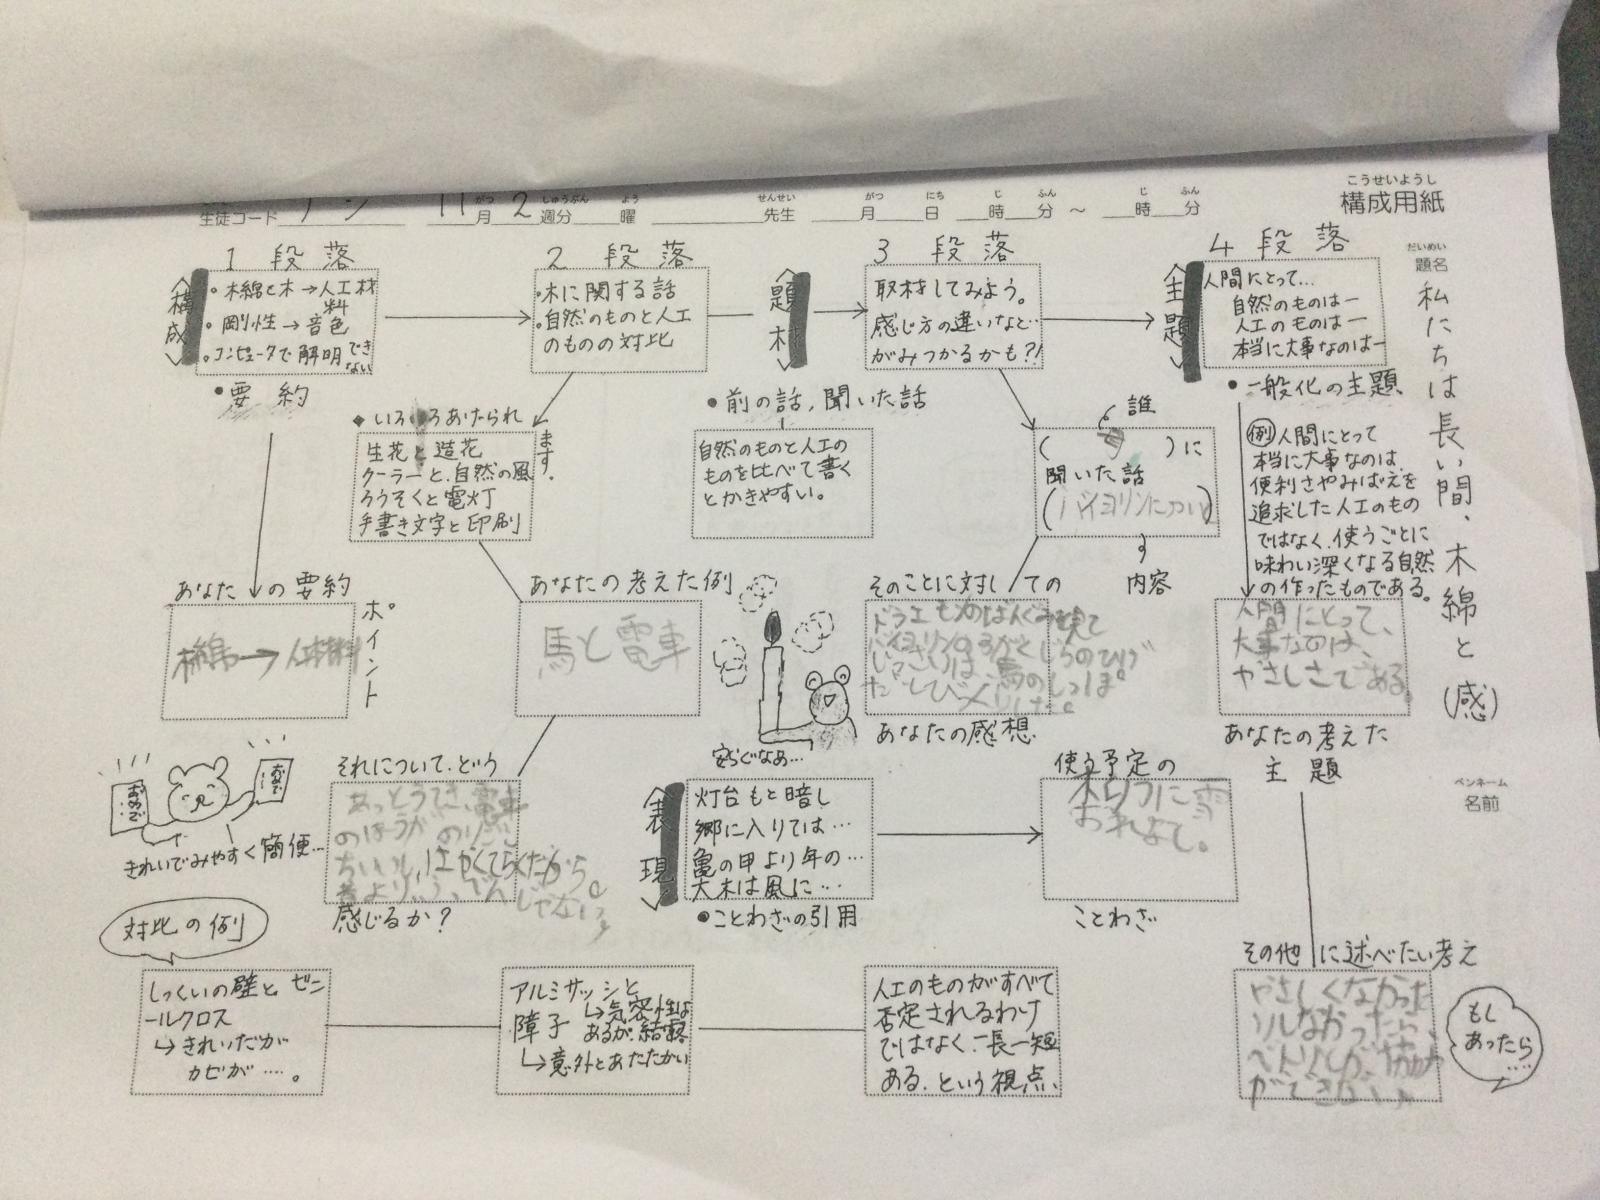 こうせいようし
構成用紙
生徒コード
11月2週分 曜 先生 月 日 時 分 ~ 時 分
がつ しゅうぶん よう せんせい がつ にち じ ふん じ ふん
だいめい
題名
私たちは長い間、木綿と(感)
ペンネーム
名前
1 段落
<構成>
・木綿と木→人工材料
・剛性→音色
・コンピュータで解明できない
・要約
あなたの要約
木綿→人工材料
ポイント
2 段落
・木に関する話
・自然のものと人工
のものの対比
◆いろいろあげられ
ます。
生花と造花
クーラーと、自然の風
ろうそくと電灯
手書き文字と印刷
あなたの考えた例
馬と電車
それについて、どう
あっとうてき、電車
のほうが
感じるか?
<題材>
・前の話、聞いた話
自然のものと人工の
ものを比べて書く
とかきやすい。
3 段落
取材をしてみよう。
感じ方の違いなど…
がみつかるかも?!
誰
(母)に
聞いた話
(バイヨリンについて)
内容
そのことに対しての
あなたの感想
<主題>
4 段落
人間にとって…
自然のものは一
人工のものは一
本当に大事なのは一
・一般化の主題
例 人間にとって
本当に大事なのは、
便利さやみばえを
追求した人工のもの
ではなく、使うごとに
味わい深くなる自然
の作ったものである。
人間にとって、
大事なのは、
やさしさである。
あなたの考えた
主題
安らぐなぁ…
おめで
おめで
きれいでみやすく簡便…
<表現>
灯台もと暗し
郷に入りては…
亀の甲より年の…
大木は風に…
・ことわざの引用
使う予定の
木りつに雪
おれなし。
ことわざ
対比の例
しっくいの壁と、ビニ
ールクロス
↳きれいだが
カビが….。
アルミサッシと
↳気密性は
あるが、結露
障子
↳意外とあたたかい
人工のものがすべて
否定されるわけ
ではなく、一長一短
ある、という視点、
その他に述べたい考え
もし
あったら
….